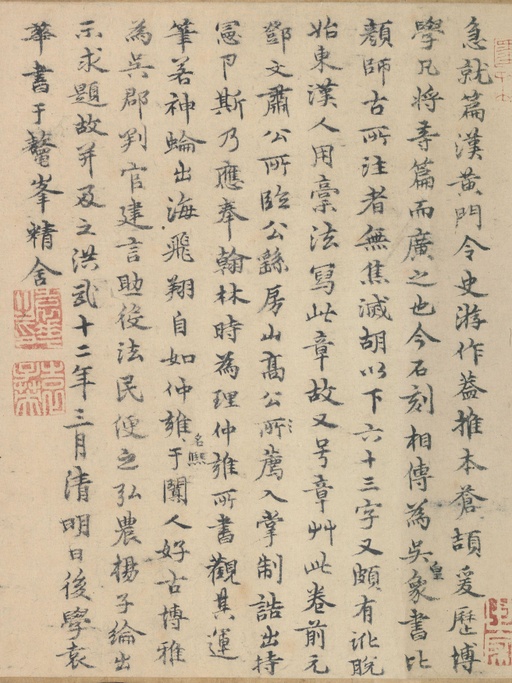 急就篇漢黃門令史游作蓋推本蒼頡爰歷博
學凡將等篇而廣之也今石刻相傳為吳皇象書比
顏師古所注者無焦滅胡以下六十三字又頗有訛脫
始東漢人用稾法寫此章故又号章艸此卷前元
鄧文肅公所臨公繇房山高公所薦入掌制誥出持
憲節斯乃應奉翰林時為理仲雍所書觀其運
筆若神蛟出海飛翔自如仲雍名熙于闐人好古博雅
為吳郡判官建言助役法民便之弘農楊子綸出
示求題故并及之洪武十二年三月清明日後學袁
華書于鼇峯精舍